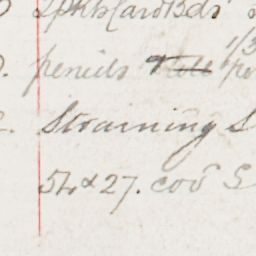 2 pkts Card Bds
pencils 1/3
Straining S
54 & 27. cov